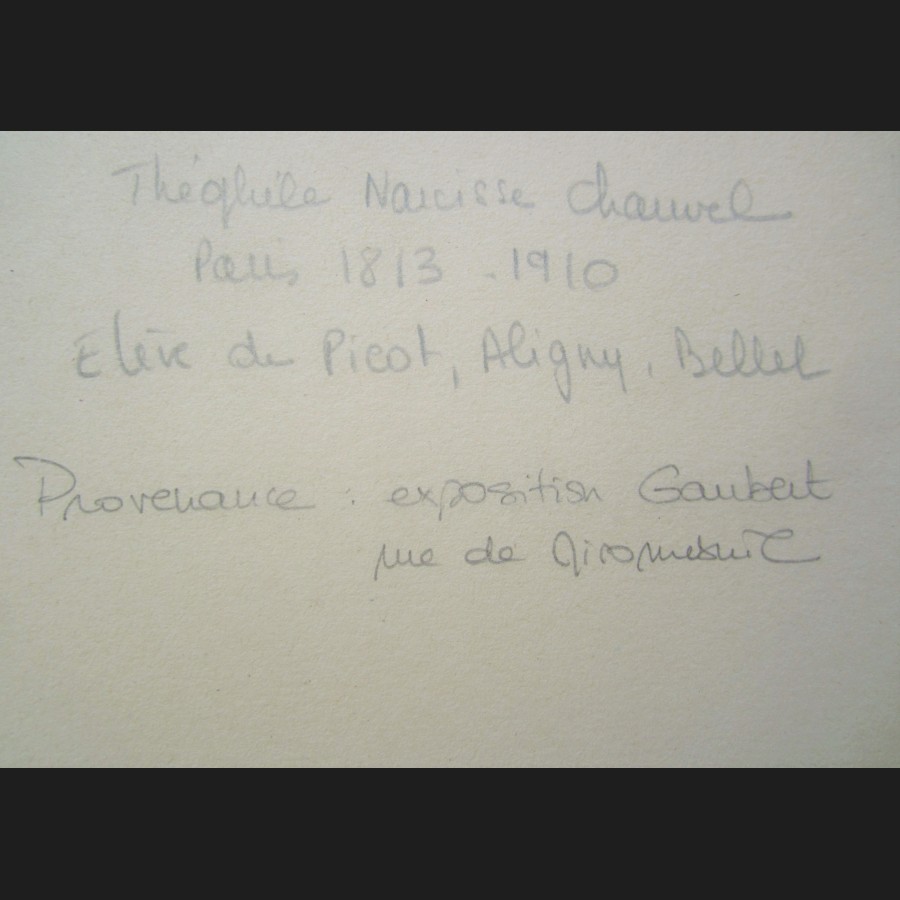 Théophile Narcisse Chauvel
Paris 1813 - 1910
Elève de Picot, Aligny, Bellel
Provenance : exposition Gaubert
rue de Miromesnil